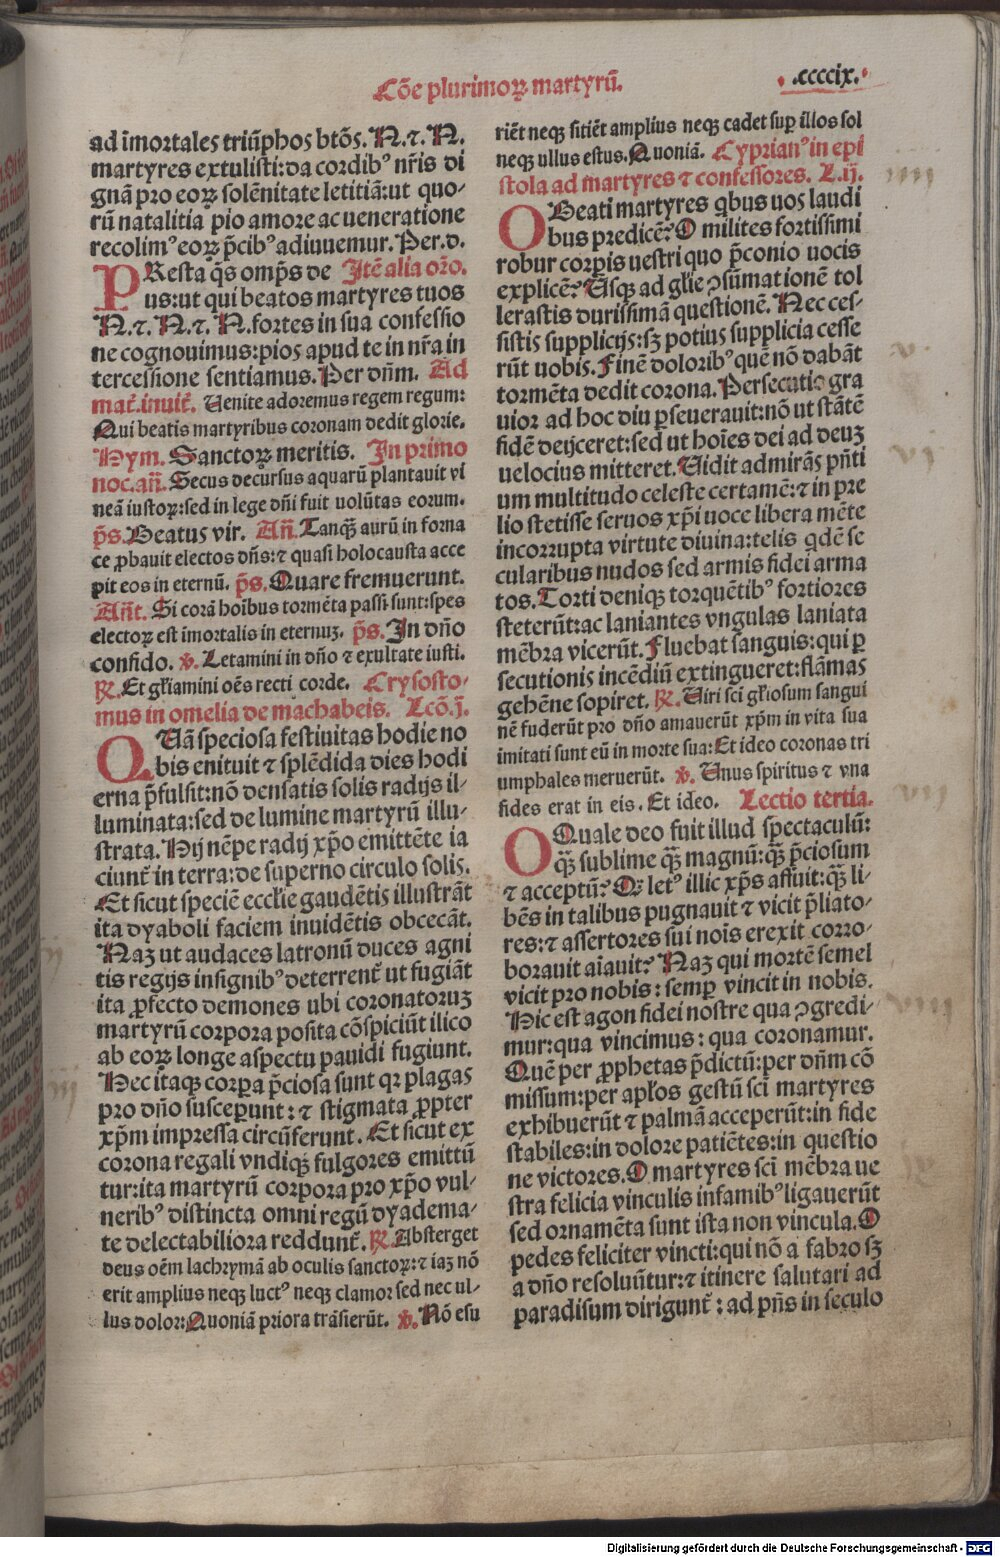 Cōe plurimoꝝ martyrū.
.ccccix.
ad īmortales triūphos btōs. N. ⁊. N.
martyres extulisti: da cordibꝰ nr̄is di
gnā pro eoꝝ solēnitate letitiā: ut quo-
rū natalitia pio amore ac ueneratione
recolimꝰ eoꝝ p̄cibꝰ adiuuemur. Per. d.
PResta q̄s omp̄s de Itē alia or̄o.
us: ut qui beatos martyres tuos
N. ⁊. N. ⁊. N. fortes in sua confessio
ne cognouimus: pios apud te in nr̄a in
tercessione sentiamus. Per dn̄m. Ad
mat̄. inuit̄. Uenite adoremus regem regum:
Qui beatis martyribus coronam dedit glorie.
Hym. Sanctoꝝ meritis. In primo
noc. añ. Secus decursus aquarū plantauit vi
neā iustoꝝ: sed in lege dn̄i fuit uolūtas eorum.
p̄s. Beatus vir. Añ. Tanqꝫ aurū in forna
ce ꝓbauit electos dn̄s: ⁊ quasi holocausta acce
pit eos in eternū. p̄s. Quare fremuerunt.
Añt. Si corā hoībus tormēta passi sunt: spes
electoꝝ est īmortalis in eternuꝫ. p̄s. In dn̄o
confido. ℣. Letamini in dn̄o ⁊ exultate iusti.
℟. Et gl̄iamini oēs recti corde. Crysosto-
mus in omelia de machabeis. Lcō. j.
QUā speciosa festiuitas hodie no
bis enituit ⁊ splēdida dies hodi
erna p̄fulsit: nō densatis solis radijs il-
luminata: sed de lumine martyrū illu-
strata. Hij nēpe radij xp̄o emittēte ia
ciunt̄ in terra: de superno circulo solis.
Et sicut speciē eccl̄ie gaudētis illustrāt
ita dyaboli faciem inuidētis obcecāt.
Naꝫ ut audaces latronū duces agni
tis regijs insignibꝰ deterrent̄ ut fugiāt
ita ꝓfecto demones ubi coronatoruꝫ
martyrū corpora posita cōspiciūt ilico
ab eoꝝ longe aspectu pauidi fugiunt.
Hec itaqꝫ corꝑa p̄ciosa sunt qꝛ plagas
pro dn̄o susceꝑunt: ⁊ stigmata ꝓpter
xp̄m impressa circūferunt. Et sicut ex
corona regali vndiqꝫ fulgores emittū
tur: ita martyrū corpora pro xp̄o vul-
neribꝰ distincta omni regū dyadema-
te delectabiliora reddunt̄. ℟. Absterget
deus oēm lachrymā ab oculis sanctoꝝ: ⁊ iaꝫ nō
erit amplius neqꝫ luctꝰ neqꝫ clamor sed nec ul-
lus dolor: Quoniā priora trāsierūt. ℣. Nō esu
riēt neqꝫ sitiēt amplius neqꝫ cadet suꝑ illos sol
neqꝫ ullus estus. Quoniā. Cyprianꝰ in epi
stola ad martyres ⁊ confessores. L. ij.
O Beati martyres qbus uos laudi
bus predicē? O milites fortissimi
robur corꝑis uestri quo p̄conio uocis
explicē? Usqꝫ ad gl̄ie ꝯsūmationē tol
lerastis durissimā questionē. Nec ces-
sistis supplicijs: sꝫ potius supplicia cesse
rūt uobis. Finē doloribꝰ quē nō dabāt
tormēta dedit corona. Persecutio gra
uior ad hoc diu ꝑseuerauit: nō ut stātē
fidē deijceret: sed ut hoīes dei ad deuꝫ
uelocius mitteret. Uidit admirās pn̄ti
um multitudo celeste certamē: ⁊ in pre
lio stetisse seruos xp̄i uoce libera mēte
incorrupta virtute diuina: telis qdē se
cularibus nudos sed armis fidei arma
tos. Torti deniqꝫ torquētibꝰ fortiores
steterūt: ac laniantes vngulas laniata
mēbra vicerūt. Fluebat sanguis: qui ꝑ
secutionis incēdiū extingueret: flāmas
gehēne sopiret. ℟. Uiri sc̄i gl̄iosum sangui
nē fuderūt pro dn̄o amauerūt xp̄m in vita sua
imitati sunt eū in morte sua: Et ideo coronas tri
umphales meruerūt. ℣. Unus spiritus ⁊ vna
fides erat in eis. Et ideo. Lectio tertia.
O Quale deo fuit illud spectaculū:
qꝫ̄ sublime qꝫ̄ magnū: qꝫ̄ p̄ciosum
⁊ acceptū? Qꝛ letꝰ illic xp̄s affuit: qꝫ̄ li-
bēs in talibus pugnauit ⁊ vicit p̄liato-
res: ⁊ assertores sui noīs erexit corro-
borauit aīauit? Naꝫ qui mortē semel
vicit pro nobis: semꝑ vincit in nobis.
Hic est agon fidei nostre qua ꝯgredi-
mur: qua vincimus: qua coronamur.
Quē per ꝓphetas p̄dictū: per dn̄m cō
missum: per apl̄os gestū sc̄i martyres
exhibuerūt ⁊ palmā acceperūt: in fide
stabiles: in dolore patiētes: in questio
ne victores. O martyres sc̄i mēbra ue
stra felicia vinculis infamibꝰ ligauerūt
sed ornamēta sunt ista non vincula. O
pedes feliciter vincti: qui nō a fabro sꝫ
a dn̄o resoluūtur: ⁊ itinere salutari ad
paradisum dirigunt̄: ad pn̄s in seculo
Digitalisierung gefördert durch die Deutsche Forschungsgemeinschaft - DFG